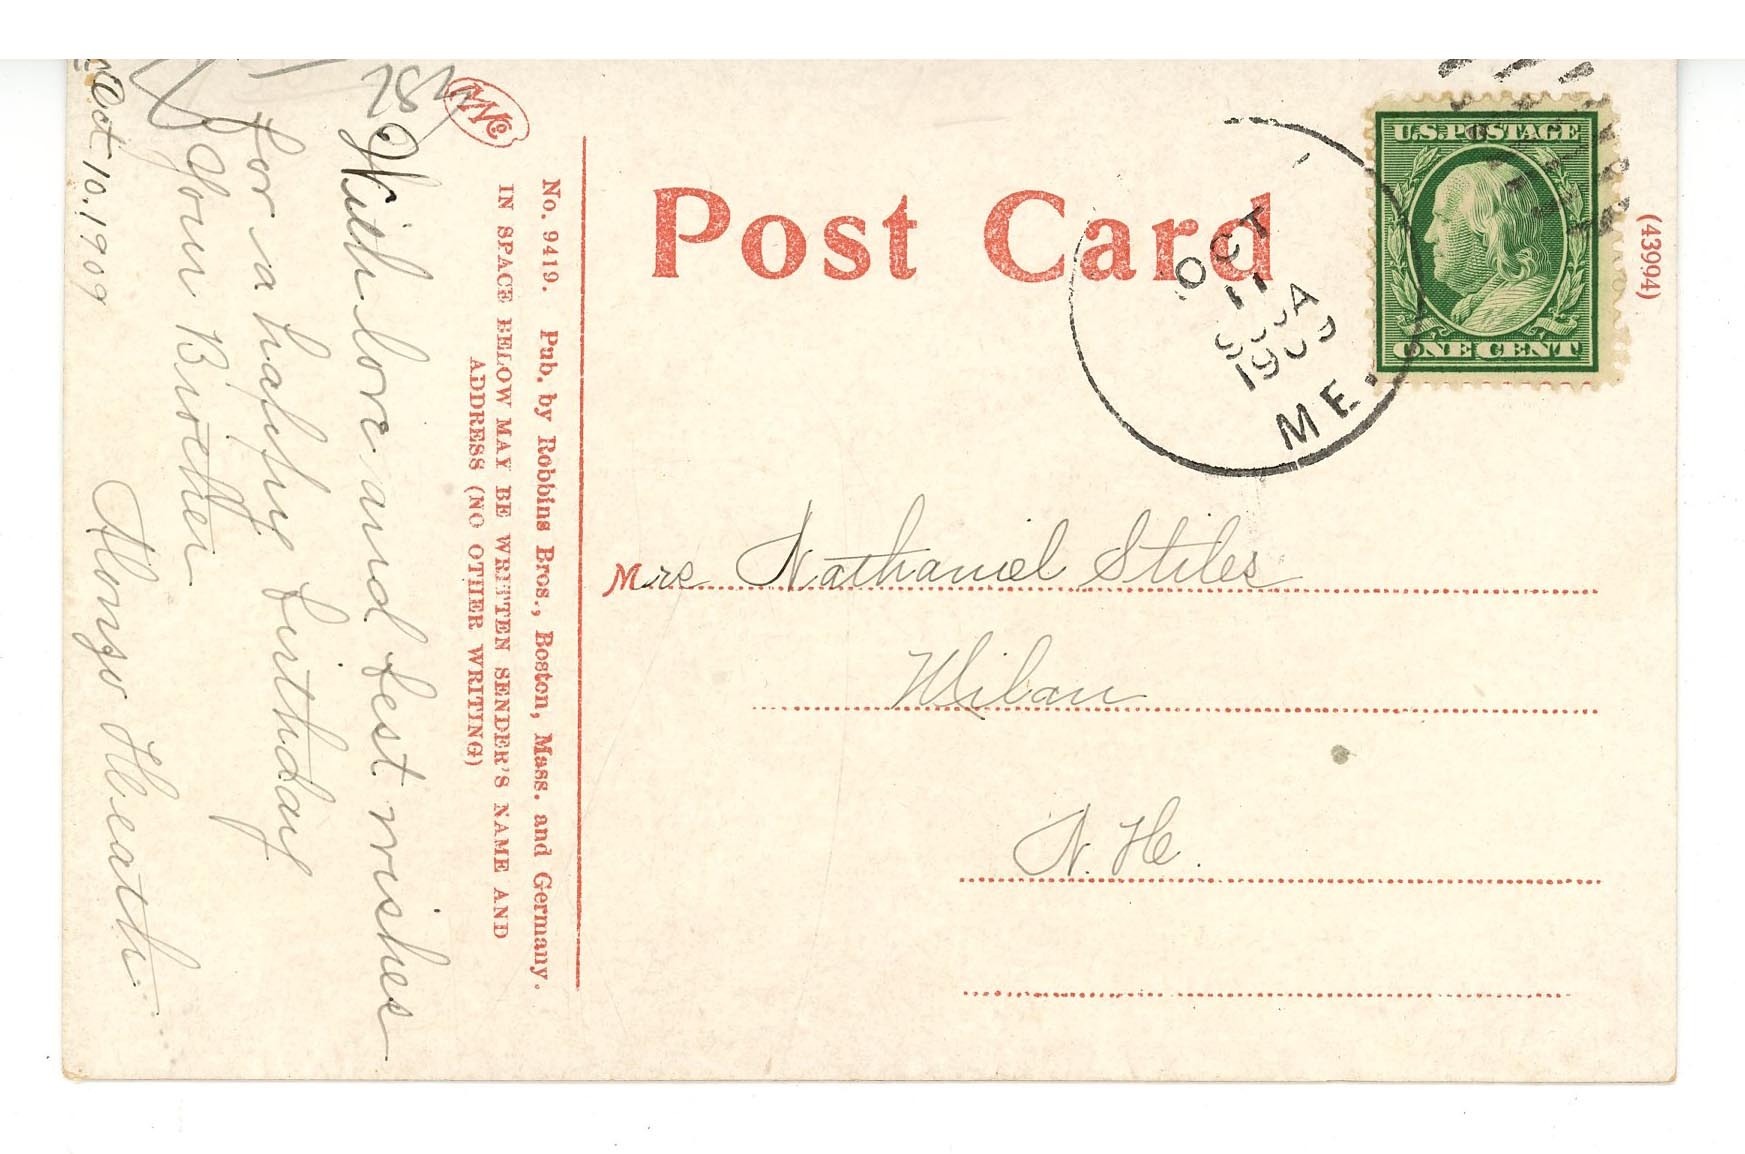 Post Card
U.S. POSTAGE
ONE CENT
(43994)
OCT
11
1909
ME.
Mrs Nathaniel Stiles
Milan
N. H.
No. 9419. Pub. by Robbins Bros., Boston, Mass. and Germany.
IN SPACE BELOW MAY BE WRITTEN SENDER'S NAME AND
ADDRESS (NO OTHER WRITING)
With love and best wishes
for a happy birthday
Your Brother
Alonzo Heath
Oct 10. 1909